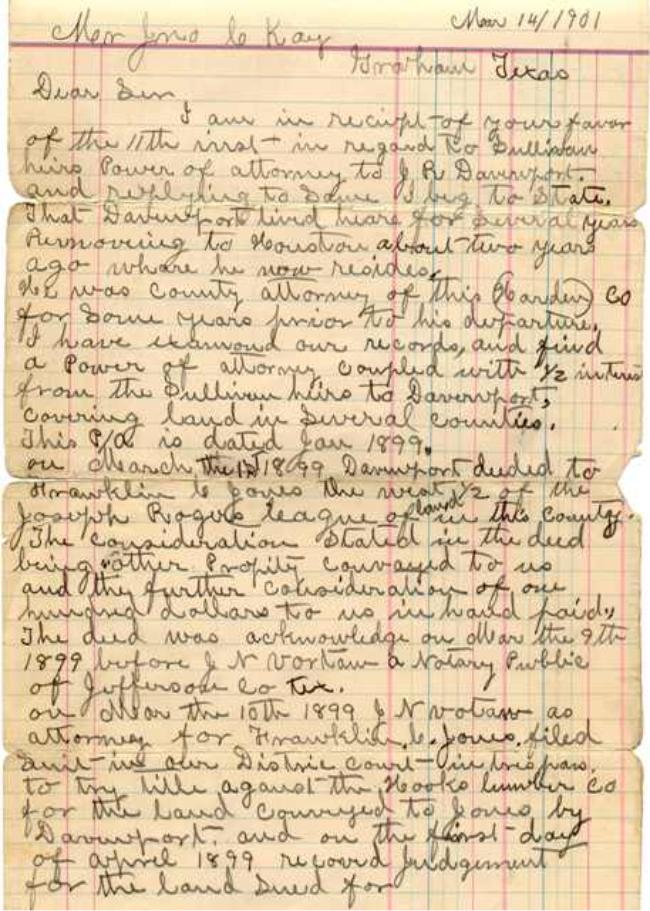 Mar 14/1901
Mr Jno C Kay
Graham Texas
Dear Sir,
I am in recipt of your favor
of the 11th inst in regard to Sullivan
heirs Power of attorney to J R Davenport.
and replying to Same I beg to State.
That Davenport lived heare for Several years
Removeing to Houston about two years
ago whare he now resides.
He was county attorney of this (Harden) Co
for Some years prior to his departure.
I have examond our records, and find
a Power of attorney coupled with 1/2 interest
from the Sullivan heirs to Davenport,
covering land in Several counties.
This P/A is dated Jan 1899.
on March the 1st 1899 Davenport deeded to
Franklin C Jones the west 1/2 of the
Joseph Rogers league of land in this County.
The consideration Stated in the deed
being "other Propity convayed to us
and the further consideration of one
hundred dollars to us in hand paid."
The deed was acknowledge on Mar the 9th
1899 before J N Votaw a Notary Public
of Jefferson Co Tex.
on Mar the 10th 1899 J N Votaw as
attorney for Franklin C. Jones, filed
Suit in our Distric Court in trespass
to try title against the Hooks lumber Co
for the land convayed to Jones by
Davenport. and on the first day
of april 1899 recoverd Judgement
for the land Sued for